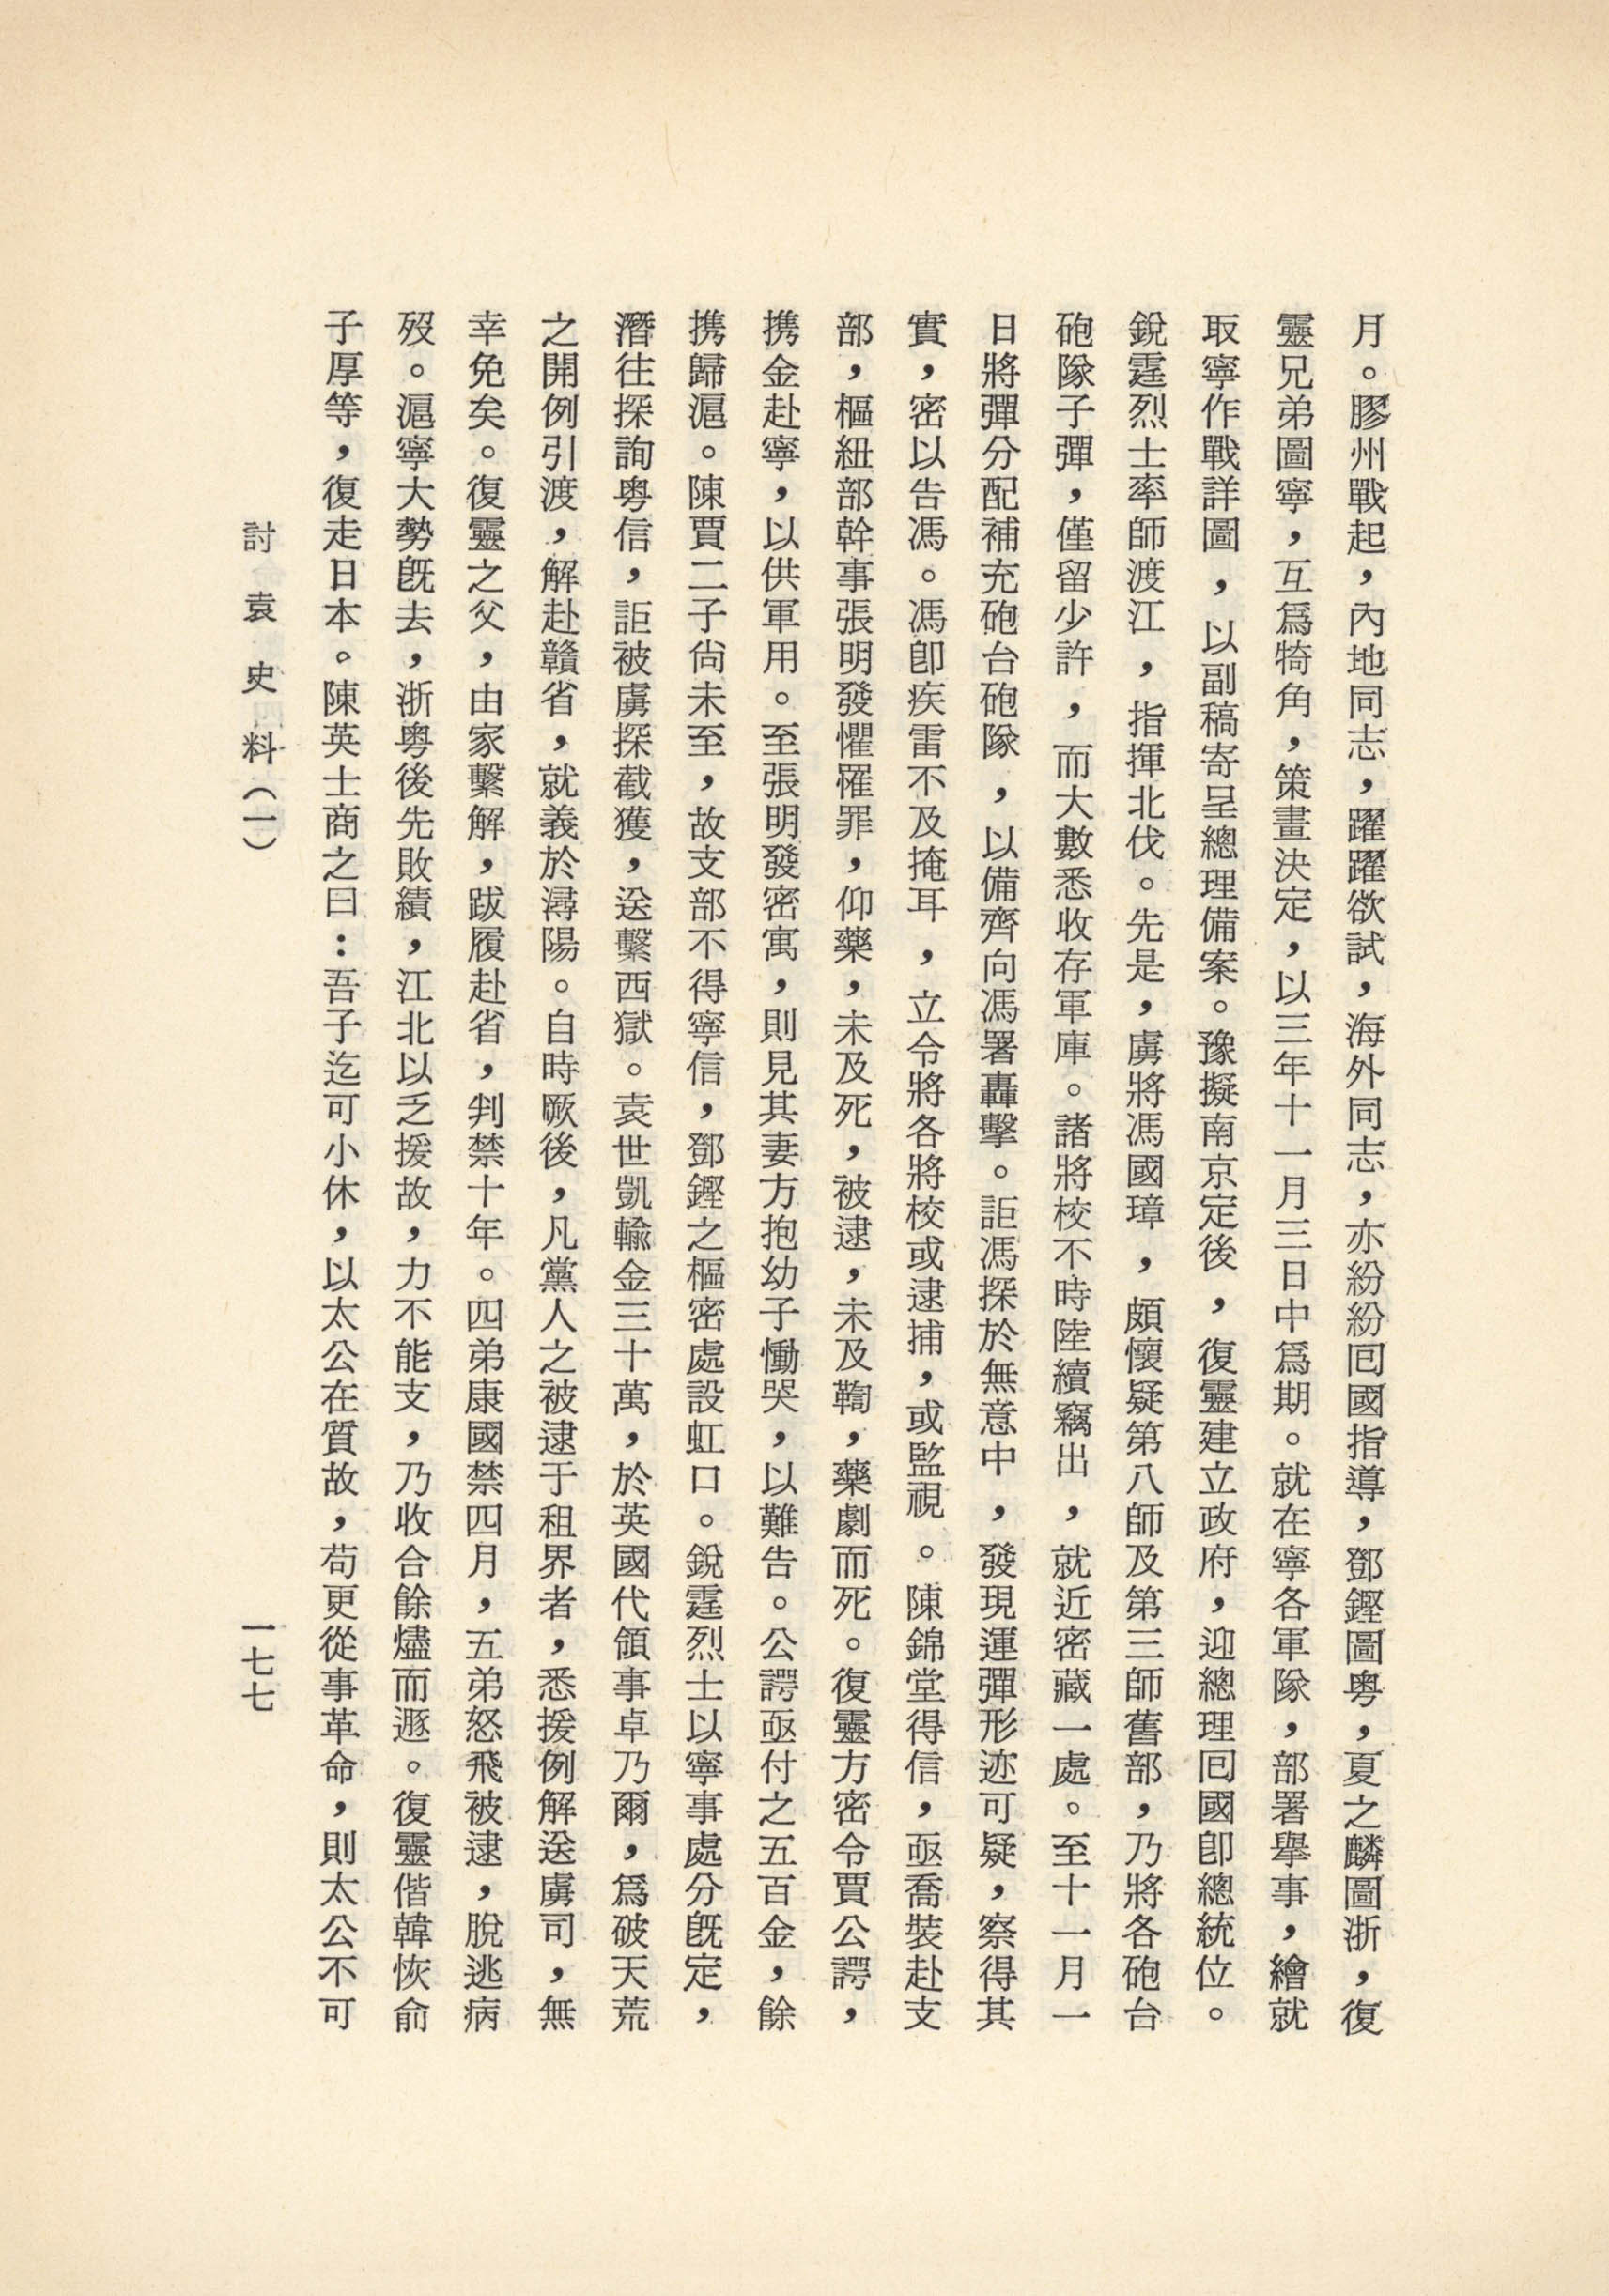 月。膠州戰起，內地同志，躍躍欲試，海外同志，亦紛紛囘國指導，鄧鏗圖粵，夏之麟圖浙，復
靈兄弟圖寧，互爲犄角，策畫決定，以三年十一月三日中爲期。就在寧各軍隊，部署舉事，繪就
取寧作戰詳圖，以副稿寄呈總理備案。豫擬南京定後，復靈建立政府，迎總理囘國卽總統位。
銳霆烈士率師渡江，指揮北伐。先是，虜將馮國璋，頗懷疑第八師及第三師舊部，乃將各砲台
砲隊子彈，僅留少許，而大數悉收存軍庫。諸將校不時陸續竊出，就近密藏一處。至十一月一
日將彈分配補充砲台砲隊，以備齊向馮署轟擊。詎馮探於無意中，發現運彈形迹可疑，察得其
實，密以告馮。馮卽疾雷不及掩耳，立令將各將校或逮捕，或監視。陳錦堂得信，亟喬裝赴支
部，樞紐部幹事張明發懼罹罪，仰藥，未及死，被逮，未及鞫，藥劇而死。復靈方密令賈公諤，
携金赴寧，以供軍用。至張明發密寓，則見其妻方抱幼子慟哭，以難告。公諤亟付之五百金，餘
携歸滬。陳賈二子尙未至，故支部不得寧信，鄧鏗之樞密處設虹口。銳霆烈士以寧事處分旣定，
潛往探詢粵信，詎被虜探截獲，送繫西獄。袁世凱輸金三十萬，於英國代領事卓乃爾，爲破天荒
之開例引渡，解赴贛省，就義於潯陽。自時厥後，凡黨人之被逮于租界者，悉援例解送虜司，無
幸免矣。復靈之父，由家繫解，跋履赴省，判禁十年。四弟康國禁四月，五弟怒飛被逮，脫逃病
歿。滬寧大勢旣去，浙粵後先敗績，江北以乏援故，力不能支，乃收合餘燼而遯。復靈偕韓恢俞
子厚等，復走日本。陳英士商之曰：吾子迄可小休，以太公在質故，苟更從事革命，則太公不可
討袁史料（一）
一七七